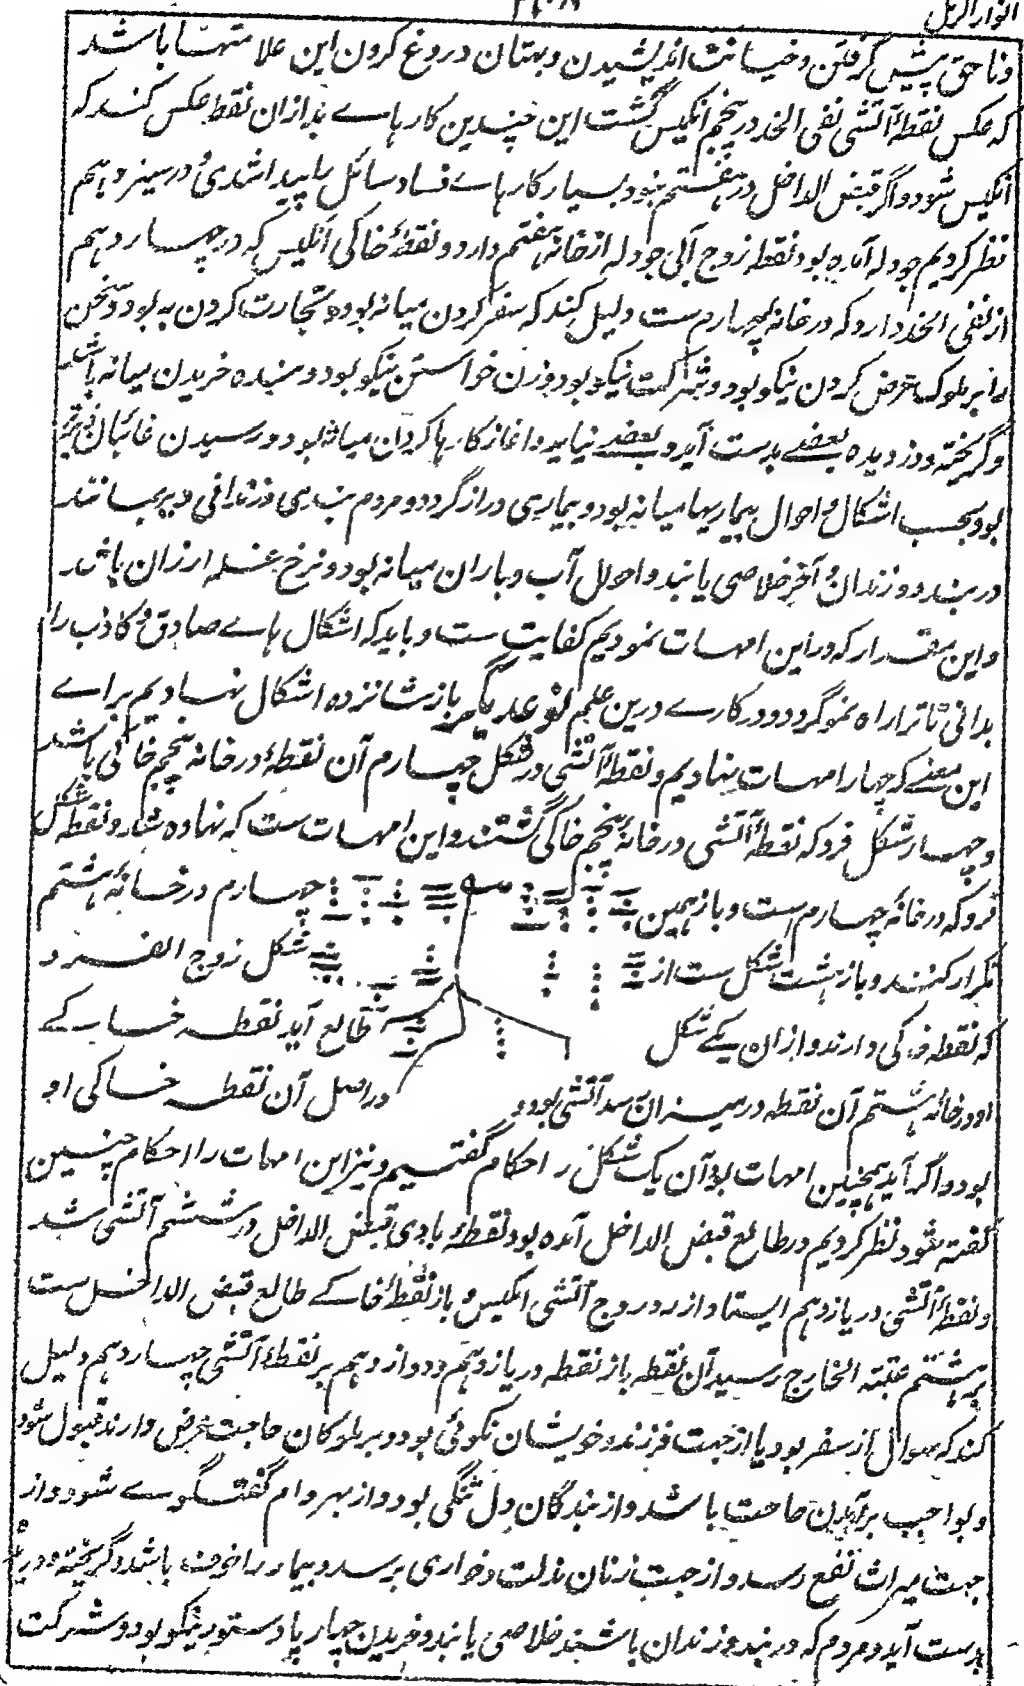 انوار الرمل
وناحق پیش گرفتن وخیانت اندیشیدن وبهتان دروغ کردن این علامتها باشد
که عکس نقطهٔ آتشی نفی الخد در پنجم انکیس گشت این چندین کارهاے بد ازان نقطه عکس کند که
انکیس شود واگر قبض الداخل در هفتم نبود بسیار کارهاے فساد سائل را پیدا شدی در سیزدهم
نظر کردیم جودله آمده بود نقطه زوج آبی جودله از خانهٔ هفتم دارد ونقطهٔ خاکی انکیس که در چهاردهم
از نفی الخد دارد که در خانهٔ چهارم ست دلیل کند که سفر کردن میانه بود وتجارت کردن به بود وسخن
را بر ملوک عرض کردن نیکو بود وشرکت نیکو بود وزن خواستن نیکو بود وبنده خریدن میانه باشد
وگریخته ودزدیده بعضے بدست آید وبعضے نیاید واغاز کارها کردن میانه بود ورسیدن غائبان
بود بحسب اشکال واحوال بیماریها میانه بود وبیماری دراز گردد ومردم بندی وزندانی دیر بمانند
در بند وزندان وآخر خلاصی یابند واحوال آب وباران میانه بود ونرخ غله ارزان باشد
واین مقدار که دراین امهات نمودیم کفایت ست وباید که اشکال هاے صادق وکاذب را
بدانی تا ترا راه نمو گردد ودر کارے درین علم نوعدیگر باز شانزده اشکال نهادیم براے
این معنے که چهار امهات بنهادیم ونقطهٔ آتشی در شکل چهارم آن نقطهٔ درخانهٔ پنجم خاکی باشد
وچهار شکل فرو که نقطهٔ آتشی درخانهٔ پنجم خاکی گشتند واین امهات ست که نهاده شد ونقطه شکل
فرو که درخانهٔ چهارم است وباز همین چهارم درخانهٔ هشتم
تکرار کنند وباز هشت شکل ست از شکل زوج الفرد و
که نقطه دارند وازان یکے شکل طالع آید نقطه خاکے
او درخانهٔ هشتم آن نقطه در میزان سد آتشی بود و در اصل آن نقطه خاکی او
بود واگر آید همچنین امهات بود آن یک شکل را احکام گفتیم ونیز این امهات را احکام چنین
گفته شود نظر کردیم در طالع قبض الداخل آمده بود نقطهٔ بادی قبض الداخل در ششم آتشی شد
ونقطهٔ آتشی در یازدهم ایستاد از ره زوج آتشی انکیس وباز نقطهٔ خاکے طالع قبض الداخل ست
به هشتم عتبة الخارج رسید آن نقطه باز نقطه در یازدهم ودوازدهم بر نقطهٔ آتشی چهاردهم دلیل
کند که سوال از سفر بود یا از جهت فرزند وخویشان نکوئی بود وبر ملوکان حاجت عرض دارند قبول شود
وبواجب برآمدن حاجت باشد واز بندگان دل تنگی بود واز بهر وام گفتگوے شود واز
جهت میراث نفع رسد واز جهت زنان مذلت وخواری برسد وبیمار را خوف باشد وگریخته
بدست آید ومردم که در بند وزندان باشند خلاصی یابند وخریدن چهارپا وستور نیکو بود وشرکت